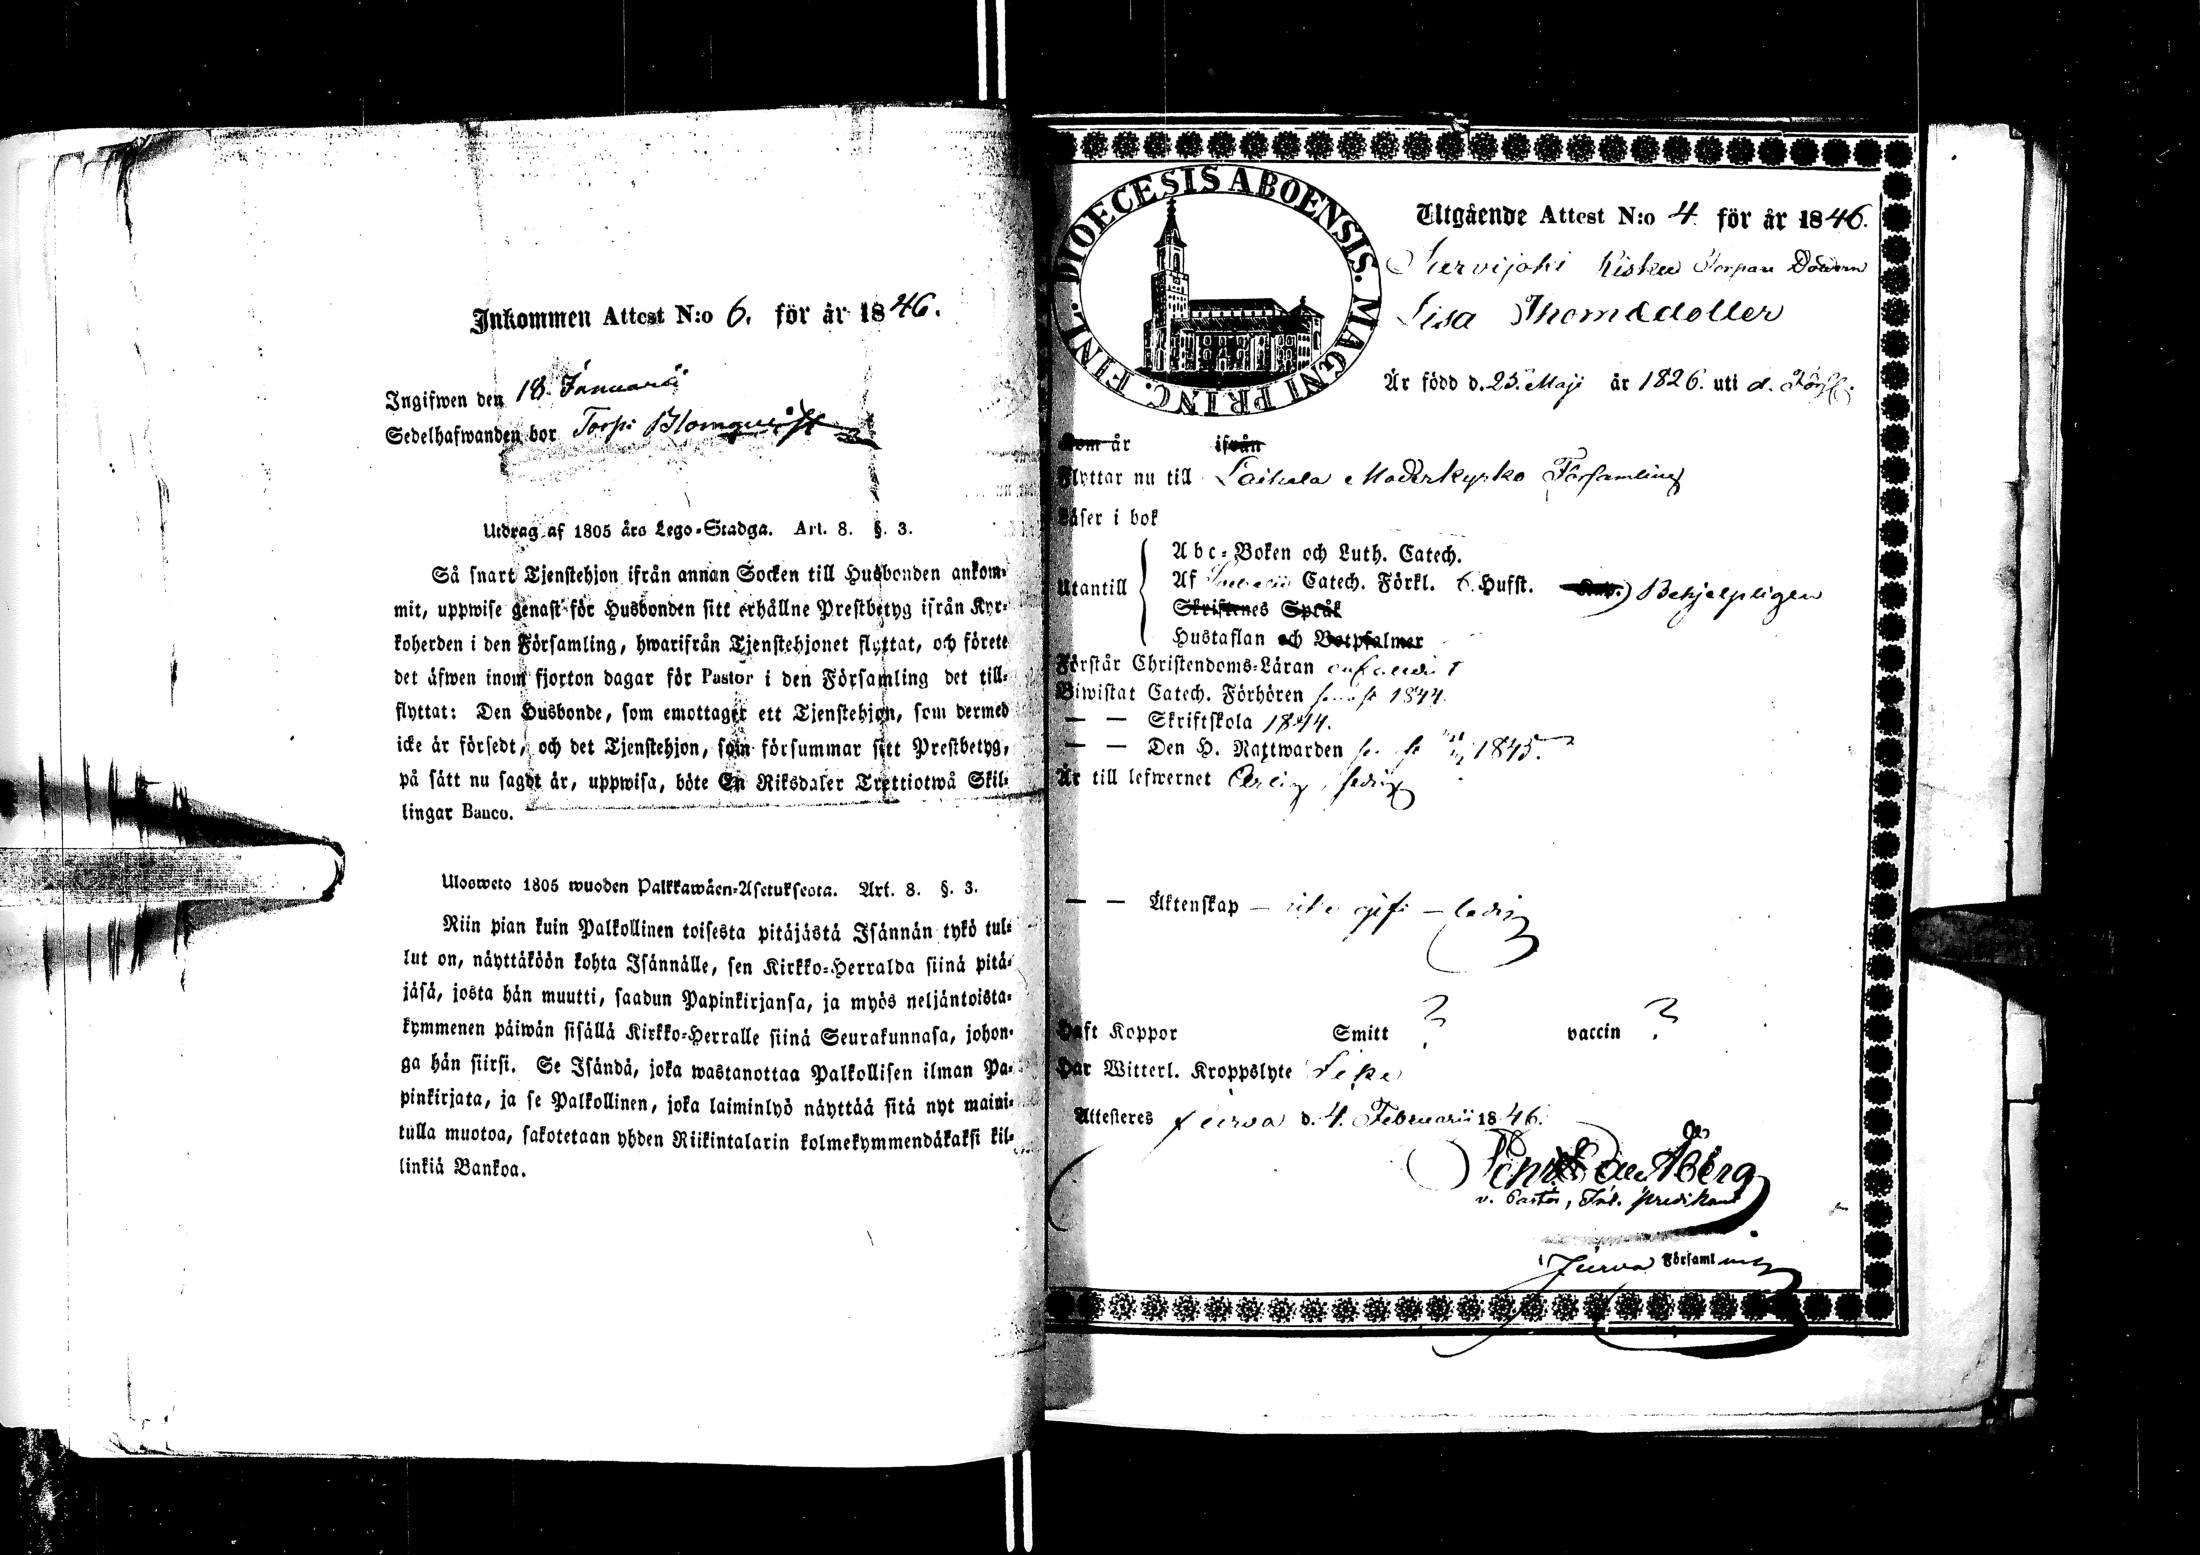 Inkommen Attest N:o 6. för år 1846.
Ingifwen den 18 Januarii
Sedelhafwanden bor Torp: Blomqvist
Utdrag af 1805 års Lego-Stadga. Art. 8. §. 3.
Så snart Tjenstehjon ifrån annan Socken till Husbonden ankom-
mit, uppwise genast för Husbonden sitt erhållne Prestbetyg ifrån Kyr-
koherden i den Församling, hwarifrån Tjenstehjonet flyttat, och förete
det äfwen inom fjorton dagar för Pastor i den Församling det till-
flyttat: Den Husbonde, som emottager ett Tjenstehjon, som dermed
icke är försedt, och det Tjenstehjon, som försummar sitt Prestbetyg,
på sätt nu sagdt är, uppwisa, böte En Riksdaler Trettiotwå Skil-
lingar Banco.
Ulosweto 1805 wuoden Palkkawäen-Asetuksesta. Art. 8. §. 3.
Niin pian kuin Palkollinen toisesta pitäjästä Isännän tykö tul-
lut on, näyttäköön kohta Isännälle, sen Kirkko-Herralda siinä pitä-
jäsä, josta hän muutti, saadun Papinkirjansa, ja myös neljäntoista-
kymmenen päiwän sisällä Kirkko-Herralle siinä Seurakunnasa, johon-
ga hän siirsi. Se Isändä, joka wastanottaa Palkollisen ilman Pa-
pinkirjata, ja se Palkollinen, joka laiminlyö näyttää sitä nyt maini-
tulla muotoa, sakotetaan yhden Riikintalarin kolmekymmendäkaksi kil-
linkiä Bankoa.
DIOECESIS ABOENSIS. MAGNI PRINC. FINL.
Utgående Attest N:o 4. för år 1846.
Survijoki Kisku Torpare Dottern
Lisa Thomædotter
Är född d. 25 Maji år 1826. uti d. Förs:
Kom år ifrån
Flyttar nu till Laihela Moderkyrko Församling
Läser i bok
Utantill
Abc-Boken och Luth. Catech.
Af Catech. Förkl. 6. Hufst. Behjelpligen
Skriftenes Språk
Hustaflan och Botpsalmer
Förstår Christendoms-Läran enfaldigt
Biwistat Catech. Förhören senast 1844.
— — Skriftskola 1844.
— — Den H. Nattwarden 1845.
Är till lefwernet Ärlig, ledig
— — Äktenskap — icke gift — ledig
Haft Koppor Smitt ? vaccin ?
Har Witterl. Kroppslyte
Attesteres Jurva d. 4. Februarii 1846.
Åberg
v. Pastor, predikant
i Jurva Församling